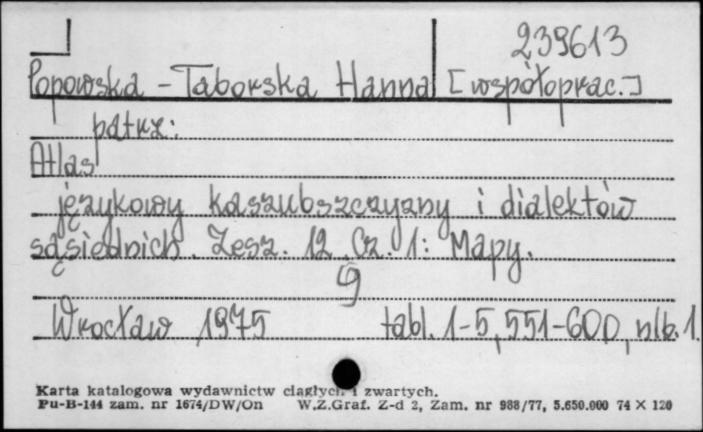 239613
Popowska-Taborska Hanna [współoprac.]
patrz:
Atlas
językowy kaszubszczyzny i dialektów
sąsiednich. Zesz. 12. Cz. 1: Mapy.
g
Wrocław 1975 tabl. 1-5, 551-600, nlb. 1.
Karta katalogowa wydawnictw ciągłych i zwartych.
Pu-B-144 zam. nr 1674/DW/On W.Z.Graf. Z-d 2, Zam. nr 988/77, 5.650.000 74 X 120